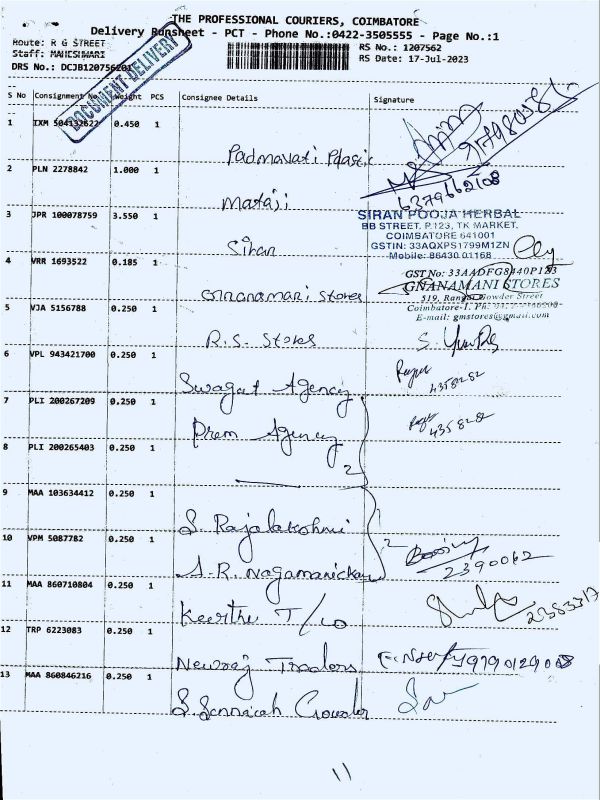 THE PROFESSIONAL COURIERS, COIMBATORE
Delivery Runsheet - PCT - Phone No.:0422-3505555 - Page No.:1
Route: R G STREET
Staff: MAHESHWARI
DRS No.: DCJB120756201
RS No.: 1207562
RS Date: 17-Jul-2023
DOCUMENT DELIVERY
S No Consignment No. Weight PCS Consignee Details Signature
1 IXM 504132622 0.450 1 Padmavati Plastic
6379662108
2 PLN 2278842 1.000 1 Mataji
3 JPR 100078759 3.550 1 Siran
SIRAN POOJA HERBAL
BB STREET, P.123, TK MARKET,
COIMBATORE 641001
GSTIN: 33AQXPS1799M1ZN
Mobile: 86430 01168
4 VRR 1693522 0.185 1 Gnanamani Stores
GST No: 33AADFG8440P1Z3
GNANAMANI STORES
519, Rangai Gowder Street
Coimbatore-1. Ph:
E-mail: gmstores@gmail.com
5 VJA 5156788 0.250 1 R.S. Stores
6 VPL 943421700 0.250 1 Swagat Agency
4358282
7 PLI 200267209 0.250 1 Prem Agency
4358282
8 PLI 200265403 0.250 1
2
9 MAA 103634412 0.250 1 S. Rajalakshmi
10 VPM 5087782 0.250 1 A.R. Nagamanickam
2
2390062
11 MAA 860710804 0.250 1 Keerthi T/co
2383317
12 TRP 6223083 0.250 1 Newraj Traders
9790129008
13 MAA 860846216 0.250 1 S. Sennaiah Gowder
11